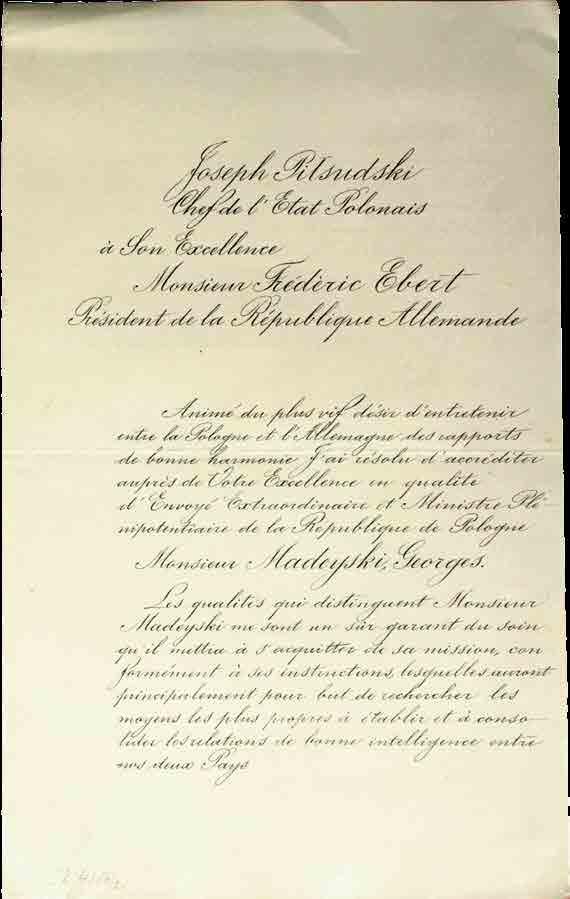 Joseph Piłsudski
Chef de l'Etat Polonais
à Son Excellence
Monsieur Frédéric Ebert
Président de la République Allemande
Animé du plus vif désir d'entretenir
entre la Pologne et l'Allemagne des rapports
de bonne harmonie J'ai résolu d'accréditer
auprès de Votre Excellence en qualité
d'Envoyé Extraordinaire et Ministre Plé-
nipotentiaire de la République de Pologne
Monsieur Madeyski, Georges.
Les qualités qui distinguent Monsieur
Madeyski me sont un sûr garant du soin
qu'il mettra à s'acquitter de sa mission, con
formément à ses instructions, lesquelles auront
principalement pour but de rechercher les
moyens les plus propres à établir et à conso-
lider les relations de bonne intelligence entre
nos deux Pays